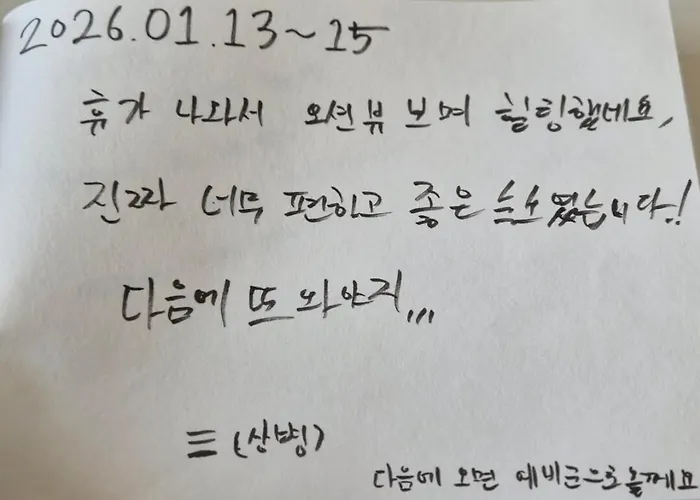 2026.01.13~15
휴가 나와서 오션뷰 보며 힐링했네요,
진짜 너무 편하고 좋은 숙소였습니다!
다음에 또 와야지,,,
☰ (상병)
다음에 오면 예비군으로 올께요